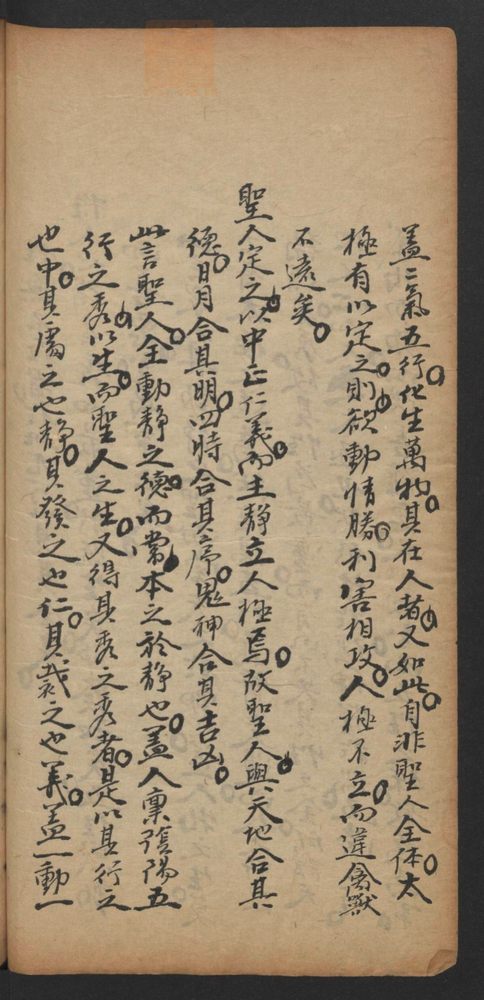 蓋二氣五行化生萬物其在人者又如此自非聖人全体太
極有以定之則欲動情勝利害相攻人極不立而違禽獸
不遠矣
聖人定之以中正仁義而主靜立人極焉故聖人與天地合其
德日月合其明四時合其序鬼神合其吉凶
此言聖人全動靜之德而常本之於靜也蓋人稟陰陽五
行之秀以生而聖人之生又得其秀之秀者是以其行之
也中其處之也靜其發之也仁其裁之也義蓋一動一